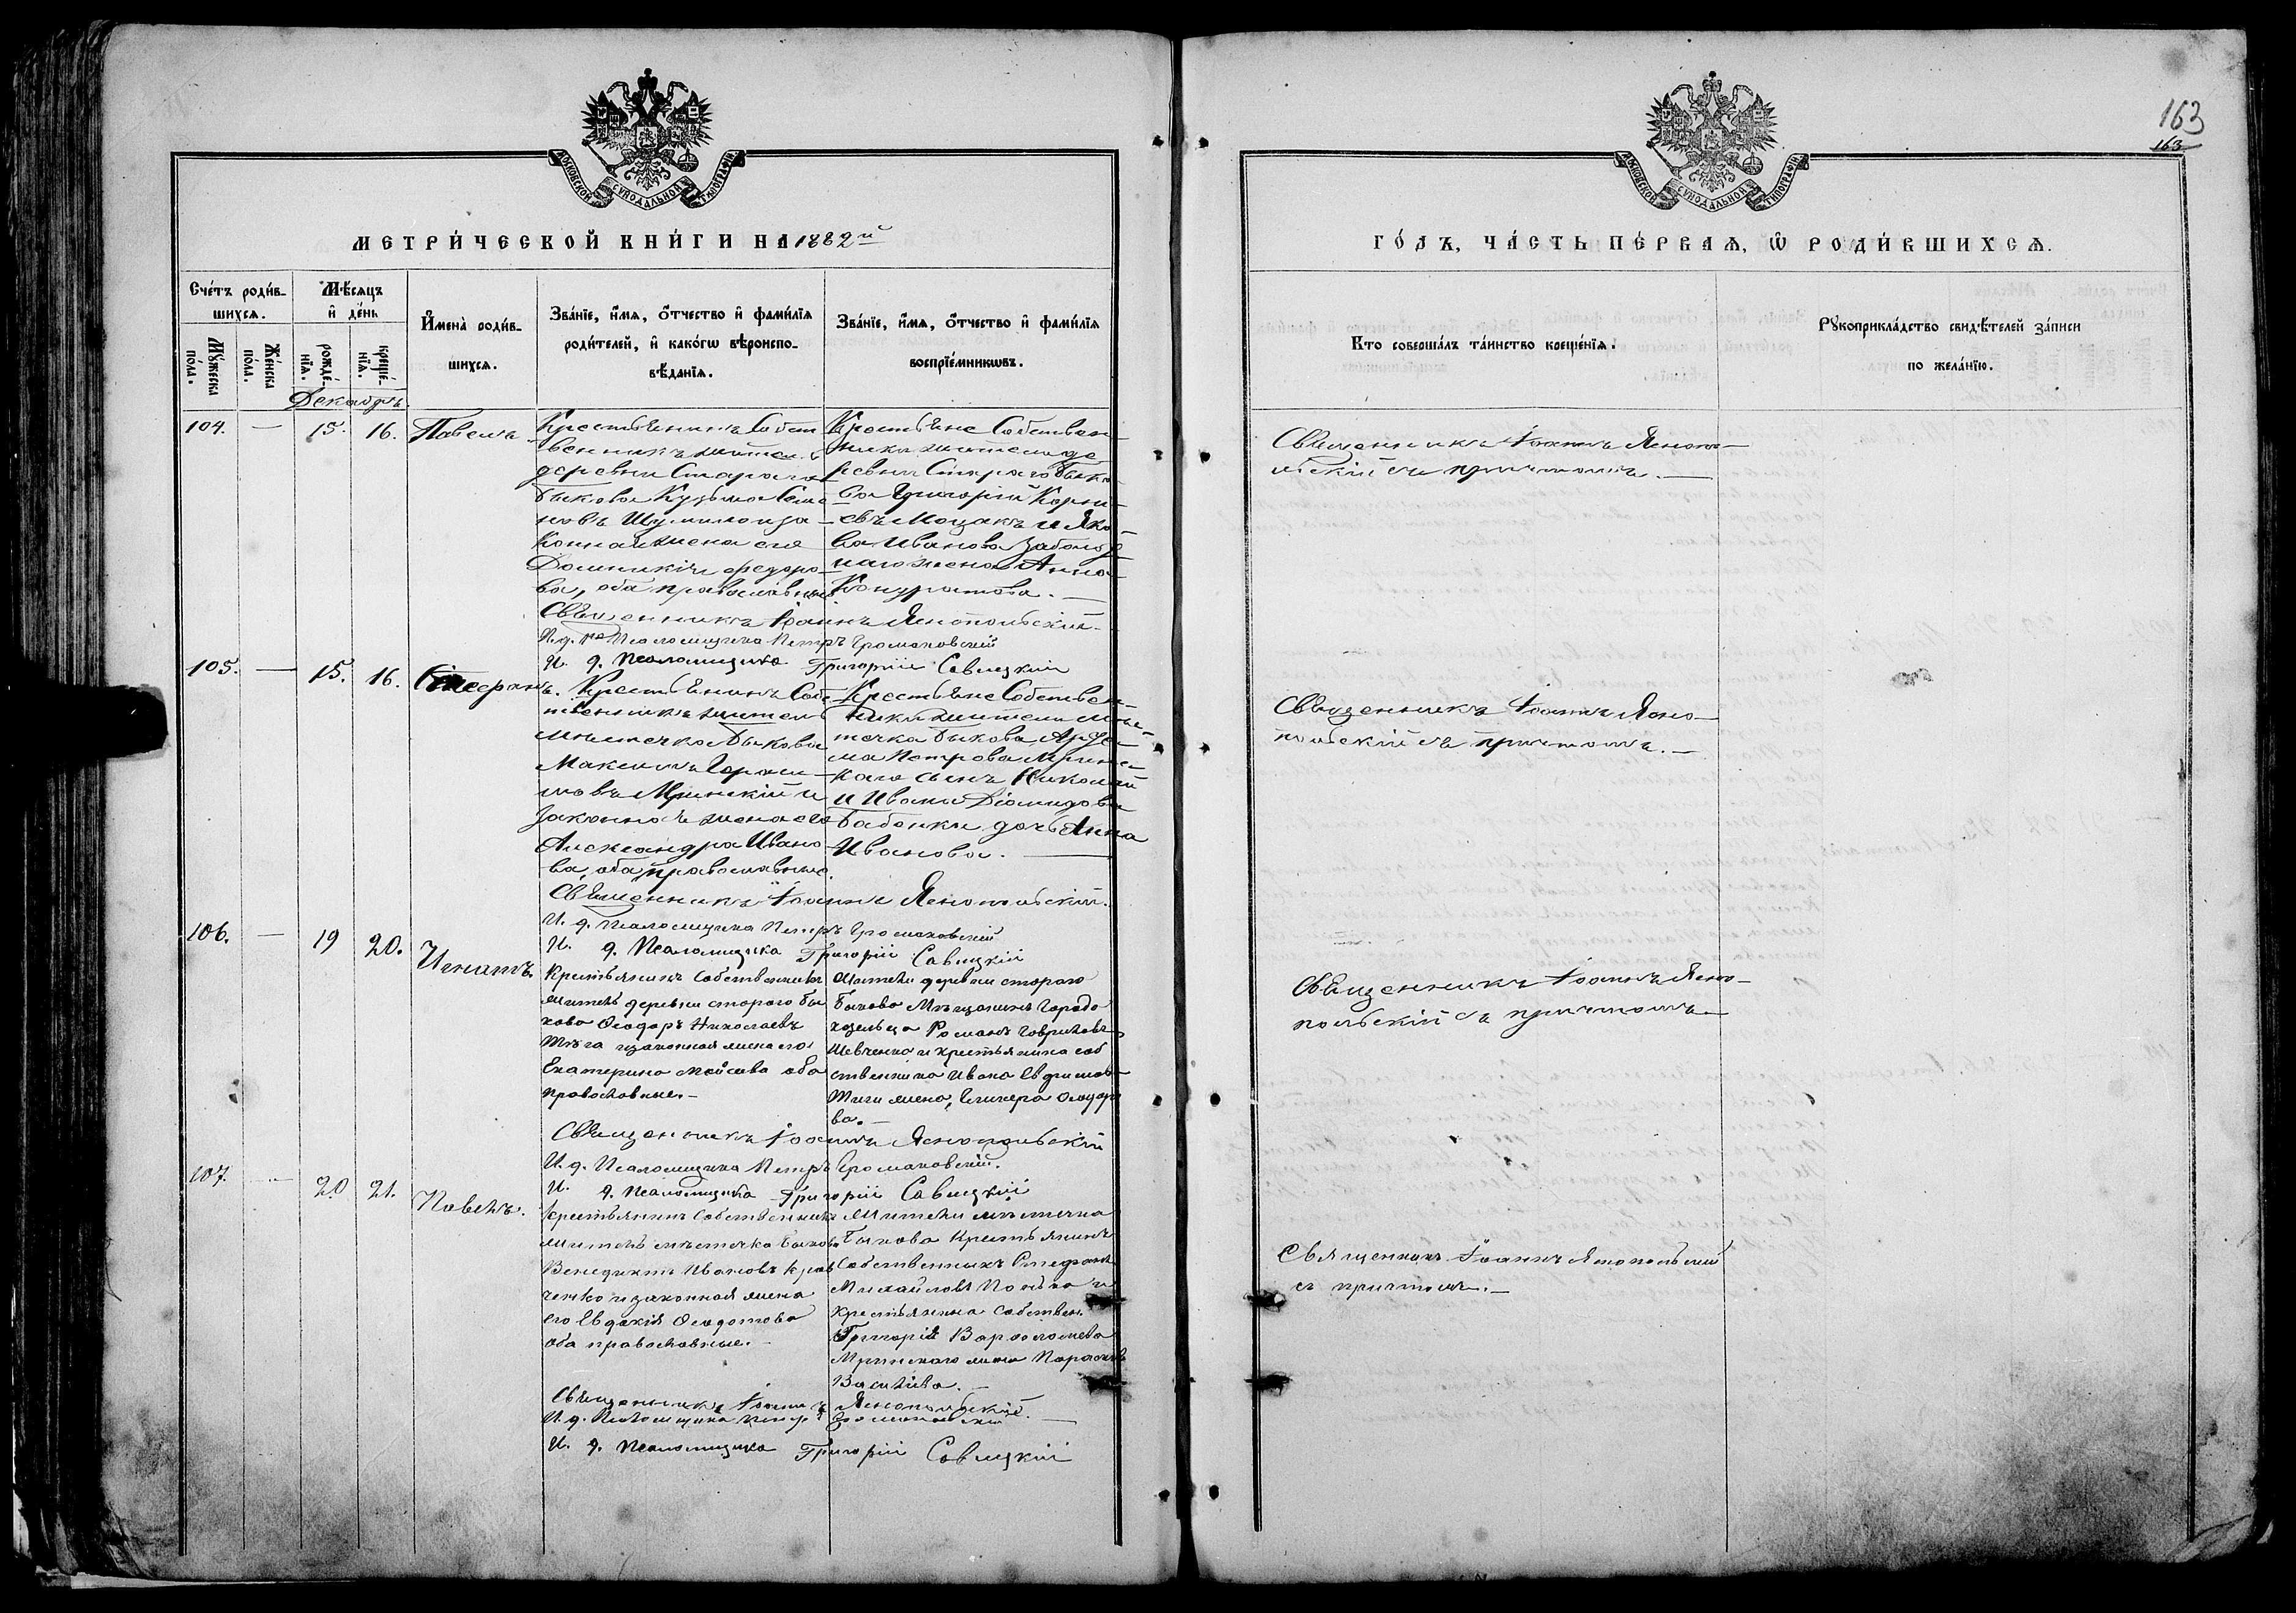 МОСКОВСКОЙ СѴНОДАЛЬНОЙ ТИПОГРАФІИ
МЕТРИ́ЧЕСКОЙ КНИ́ГИ НА 1882й
Сче́тъ роди́в-
шихся.
Мѣ́сяцъ
и҆ де́нь
Мꙋ́жеска
по́ла.
Же́нска
по́ла.
рожде́-
нїѧ.
креще́-
нїѧ.
И҆мена̀ роди́в-
шихся.
Зва́нїе, и҆́мѧ, о҆́тчество и҆ фами́лїѧ
роди́телей, и҆ како́гѡ вѣроиспо-
вѣ́данїѧ.
Зва́нїе, и҆́мѧ, о҆́тчество и҆ фами́лїѧ
воспрїе́мникѡвъ.
Декабрь.
104. — 15. 16. Павелъ
Крестьянинъ Собст
венникъ житель
деревни Стараго
Быкова Кузьма Семе
новъ Шумило и за
конная жена его
Домникія Федоро-
ва, оба православные
Крестьяне Собствен-
ники жители де
ревни Стараго Быко
ва Григорій Корни-
евъ Моцакъ и Яко
ва Иванова
жена Анна
Кондратова. —
Священникъ Іоаннъ Яснопольскій
И. д. Псаломщика Петръ Громаковскій
И. д. Псаломщика Григорій Савицкій
105. — 15. 16. Стефанъ.
Крестьянинъ Соб-
ственникъ житель
мѣстечка Быкова
Максимъ Гераси-
мовъ Мринскій и
законная жена его
Александра Ивано-
ва, оба православные.
Крестьяне Собствен-
ники жители мѣс-
течка Быкова, Арте-
ма Петрова Мринс-
каго сынъ Николай
и Ивана Діомидова
Бабенки дочь Анна
Иванова. —
Священникъ Іоаннъ Яснопольскій.
И. д. Псаломщика Петръ Громаковскій
И. д. Псаломщика Григорій Савицкій
106. — 19 20. Игнатъ.
Крестьянинъ Собственникъ
житель деревни стараго Бы
кова Ѳеодоръ Николаевъ
и законная жена его
Екатерина Моисеева оба
православные. —
Жители деревни стараго
Быкова Мѣщанинъ Городо
козельца Романъ Гавриловъ
Шевченко и крестьянина соб
ственника Ивана Евфимова
жена, Гликера Ѳеодоро
ва. —
Священникъ Іоаннъ Яснопольскій
И. д. Псаломщика Петръ Громаковскій.
И. д. Псаломщика Григорій Савицкій
107. — 20 21. Павелъ.
Крестьянинъ Собственникъ
житель мѣстечка Быкова
Венедиктъ Ивановъ Крав
ченко и законная жена
его Евдокія Ѳеодотова
оба православные. —
Жители мѣстечка
Быкова Крестьянинъ
Собственникъ Стефанъ
Михайловъ и
крестьянина собствен.
Григорія Варѳоломеева
Мринскаго жена Параскева
Васильева. —
Священникъ Іоаннъ Яснопольскій.
И. д. Псаломщика Петръ Громаковскій
И. д. Псаломщика Григорій Савицкій
163
163
МОСКОВСКОЙ СѴНОДАЛЬНОЙ ТИПОГРАФІИ
ГО́ДЪ, ЧА́СТЬ ПЕ́РВАѦ, Ѡ҆ РОДИ́ВШИХСѦ.
Кто соверша́лъ та́инство креще́нїѧ.
Рꙋкоприкла́дство свидѣ́телей за́писи
по жела́нїю.
Священникъ Іоаннъ Яснопо-
льскій съ причтомъ. —
Священникъ Іоаннъ Ясно-
польскій съ причтомъ. —
Священникъ Іоаннъ Ясно-
польскій съ причтомъ —
Священникъ Іоаннъ Яснопольскій
съ причтомъ. —